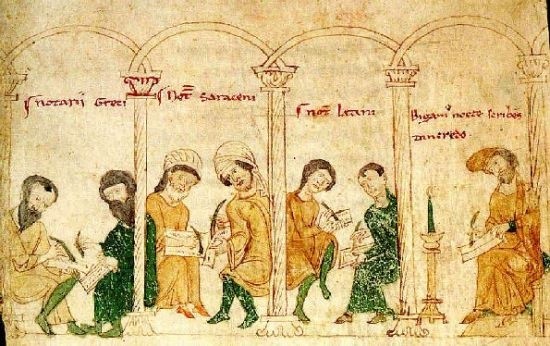 notarii Greci
Not̄ Saraceni
Not̄ Latini
Bigamꝰ nocte scribēs
tancredo